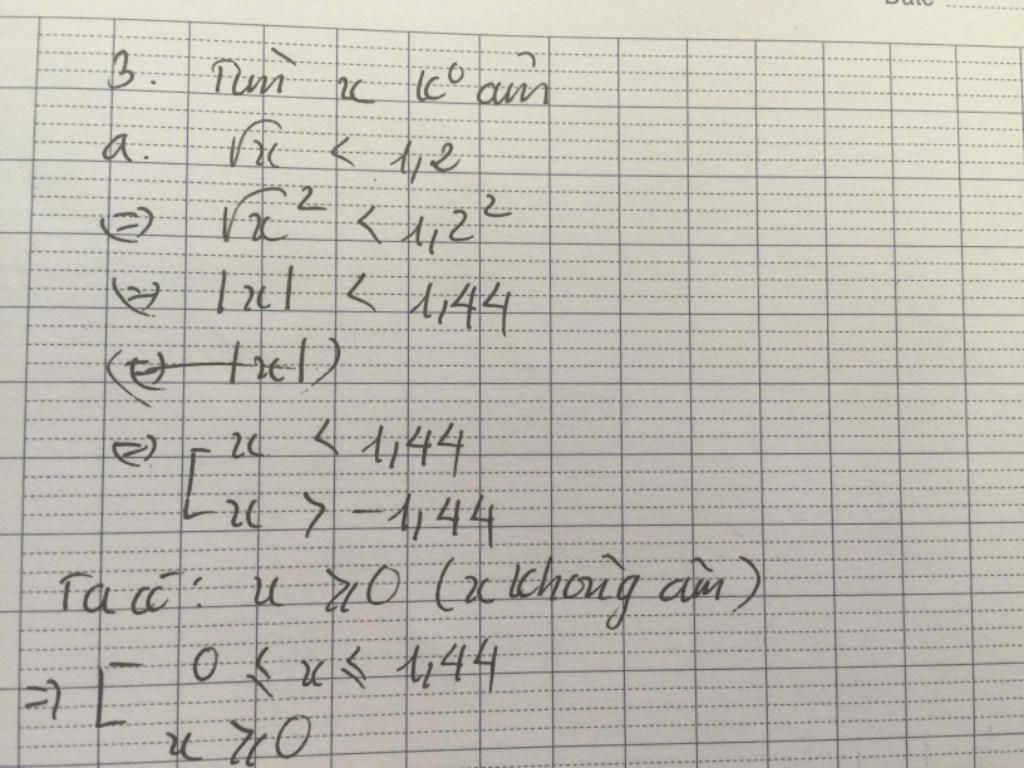 Date
3. Tìm x k⁰ âm
a. √x < 1,2
⇒ √x² < 1,2²
⇒ |x| < 1,44
(⇔ |x|)
⇒ [ x < 1,44
x > -1,44
Ta có: x ≥ 0 (x không âm)
⇒ [ 0 ≤ x ≤ 1,44
x ≥ 0